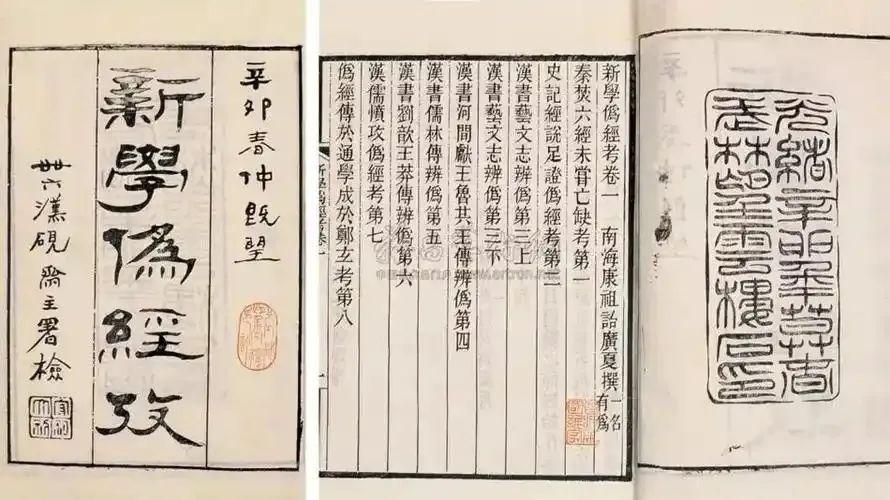 辛卯春仲既望
新學僞經攷
卅六漢硯齋主署檢
新學僞經考卷一　南海康祖詒廣夏撰 一名有爲
秦焚六經未嘗亡缺考第一
史記經說足證僞經考第二
漢書藝文志辨僞第三上
漢書藝文志辨僞第三下
漢書河間獻王魯共王傳辨僞第四
漢書儒林傳辨僞第五
漢書劉歆王莽傳辨僞第六
漢儒憤攻僞經考第七
僞經傳於通學成於鄭玄考第八
光緒辛卯
武林望雲樓石印